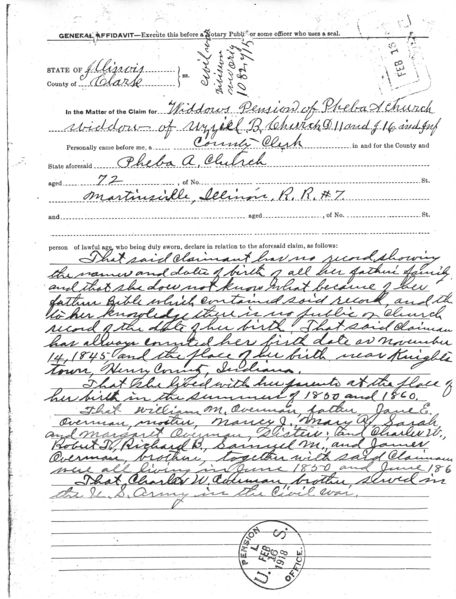 GENERAL AFFIDAVIT—Execute this before a Notary Public or some officer who uses a seal.
FEB 16
Civil war
division
widorig
1082715
STATE OF Illinois
County of Clark } ss.
In the Matter of the Claim for Widdows Pension of Pheba A Church
widdow of Uzziel B. Church D 11 and G 16 ind Inf
Personally came before me, a County Clerk in and for the County and
State aforesaid Pheba A. Chutrch
aged 72 , of No. St.
Martinsville, Illinois, R.R. #7.
and aged , of No. St.
person of lawful age, who being duly sworn, declare in relation to the aforesaid claim, as follows:
That said Claimant has no record showing
the names and dates of birth of all her fathers family
and that she does not know what became of her
fathers Bible which contained said record, and th
to her knowledge there is no public or Church
record of the date of her birth. That said Claiman
has always counted her birth date as November
14, 1845 and the place of her birth near Knights
town, Henry County, Indiana.
That She lived with her parents at the place of
her birth in the summer of 1850 and 1860.
That William M. Overman father, Jane E.
Overman, mother, Nancy J. Mary A. Sarah
and Margaret Overman, Sisters; and Charles W.,
Robert T., Richard B., Samuel M., and James
Overman, brothers, together with said Claiman
were all living in June 1850 and June 186
That Charles W. Overman, brother, served in
the U.S. Army in the Civil War.
U. S. PENSION OFFICE.
FEB
16
1918